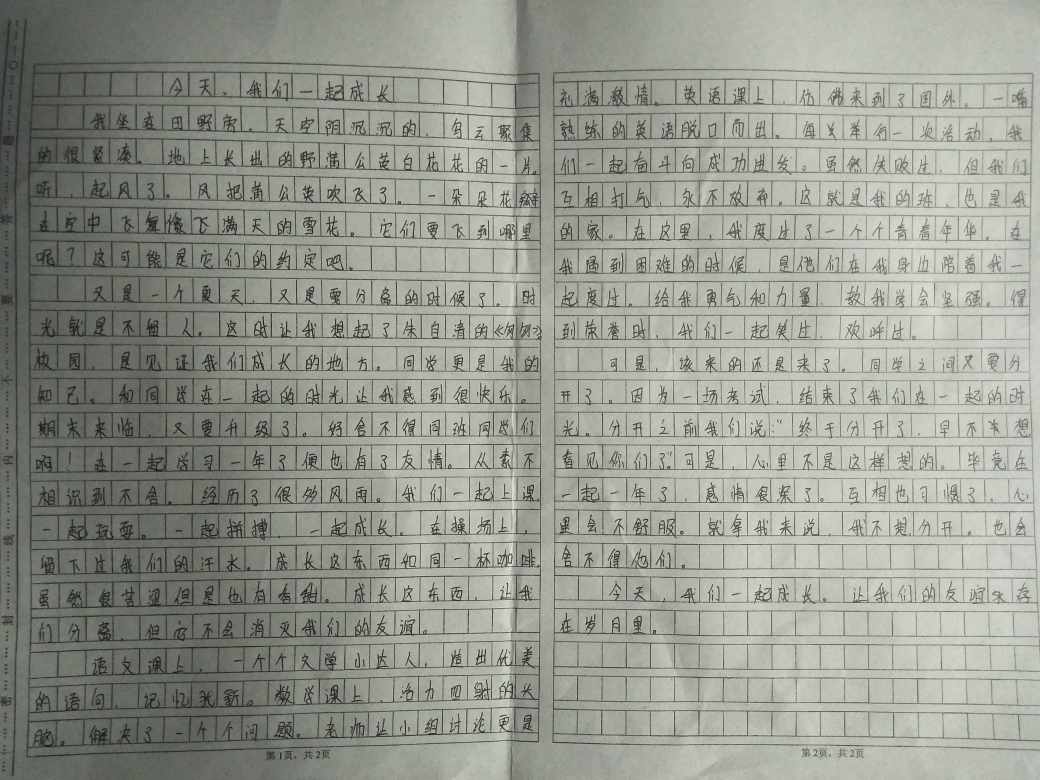 今天，我们一起成长
我坐在田野旁，天空阴沉沉的，乌云聚集
的很紧凑。地上长出的野蒲公英白花花的一片。
听，起风了。风把蒲公英吹飞了。一朵朵花
在空中飞舞像飞满天的雪花。它们要飞到哪里
呢？这可能是它们的约定吧。
又是一个夏天，又是要分离的时候了。时
光就是不留人。这时让我想起了朱自清的《匆匆》。
校园，是见证我们成长的地方。同学更是我的
知己。和同学在一起的时光让我感到很快乐。
期末来临，又要升级了。好舍不得同班同学们
啊！在一起学习一年了便也有了友情。从素不
相识到不舍。经历了很多风雨。我们一起上课
一起玩耍。一起拼搏，一起成长。在操场上，
留下过我们的汗水。成长这东西如同一杯咖啡，
虽然很苦涩但是也有香甜。成长这东西，让我
们分离，但它不会消灭我们的友谊。
语文课上，一个个文学小达人，造出优美
的语句，记忆犹新。数学课上，活力四射的大
脑。解决了一个个问题。老师让小组讨论更是
充满激情。英语课上，仿佛来到了国外。一嘴
熟练的英语脱口而出。每次举行一次活动，我
们一起奋斗向成功进发。虽然失败过，但我们
互相打气，永不放弃。这就是我的班，也是我
的家。在这里，我度过了一个个青春年华。在
我遇到困难的时候，是他们在我身边陪着我一
起度过。给我勇气和力量，教我学会坚强。得
到荣誉时，我们一起笑过，欢呼过。
可是，该来的还是来了。同学之间又要分
开了。因为一场考试，结束了我们在一起的时
光。分开之前我们说：“终于分开了，早不想
看见你们了”。可是，心里不是这样想的。毕竟在
一起一年了，感情很深了。互相也习惯了，心
里会不舒服。就拿我来说，我不想分开。也会
舍不得他们。
今天，我们一起成长。让我们的友谊永存
在岁月里。
第1页，共2页
第2页，共2页